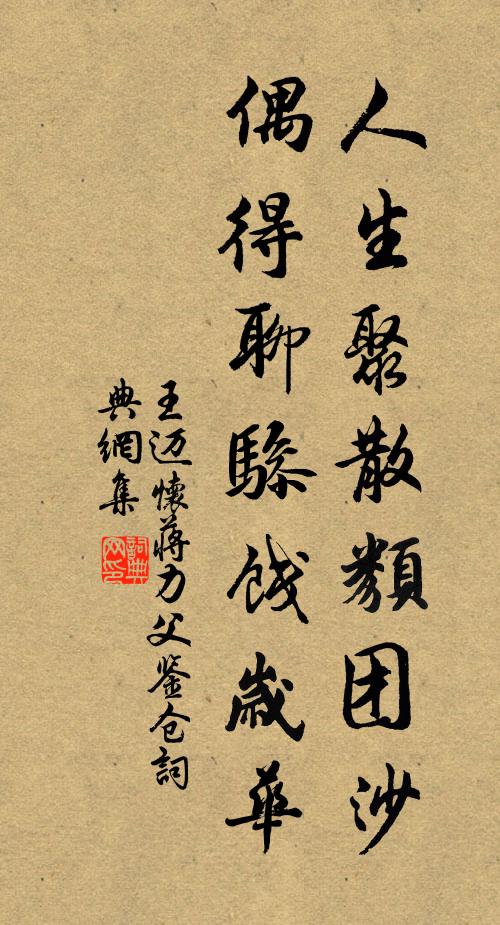 人生聚散類团沙
偶得聊驂饯歲華
王迈懷蔣力父鉴仓詞
典網集
詞典
网印